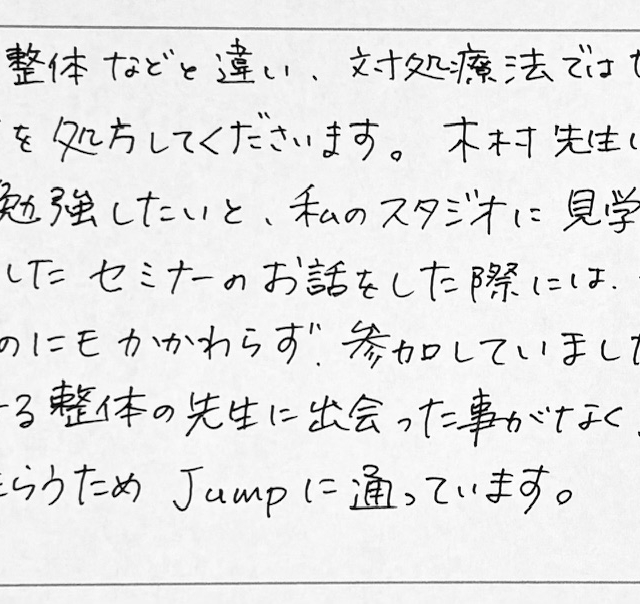 整体などと違い、対処療法では
を処方してくださいます。木村先生
勉強したいと、私のスタジオに見学
した セミナーのお話をした際には、
のにもかかわらず、参加していました
る整体の先生に出会った事がなく、
もらうため Jumpに通っています。